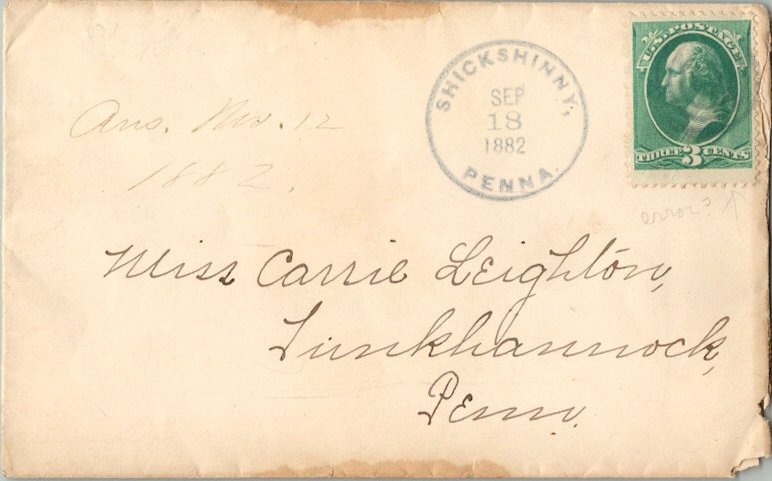 U.S. POSTAGE
THREE 3 CENTS
SHICKSHINNY,
SEP
18
1882
PENNA.
Ans. Nov. 12
1882.
error?
Miss Carrie Leighton,
Tunkhannock,
Penn.